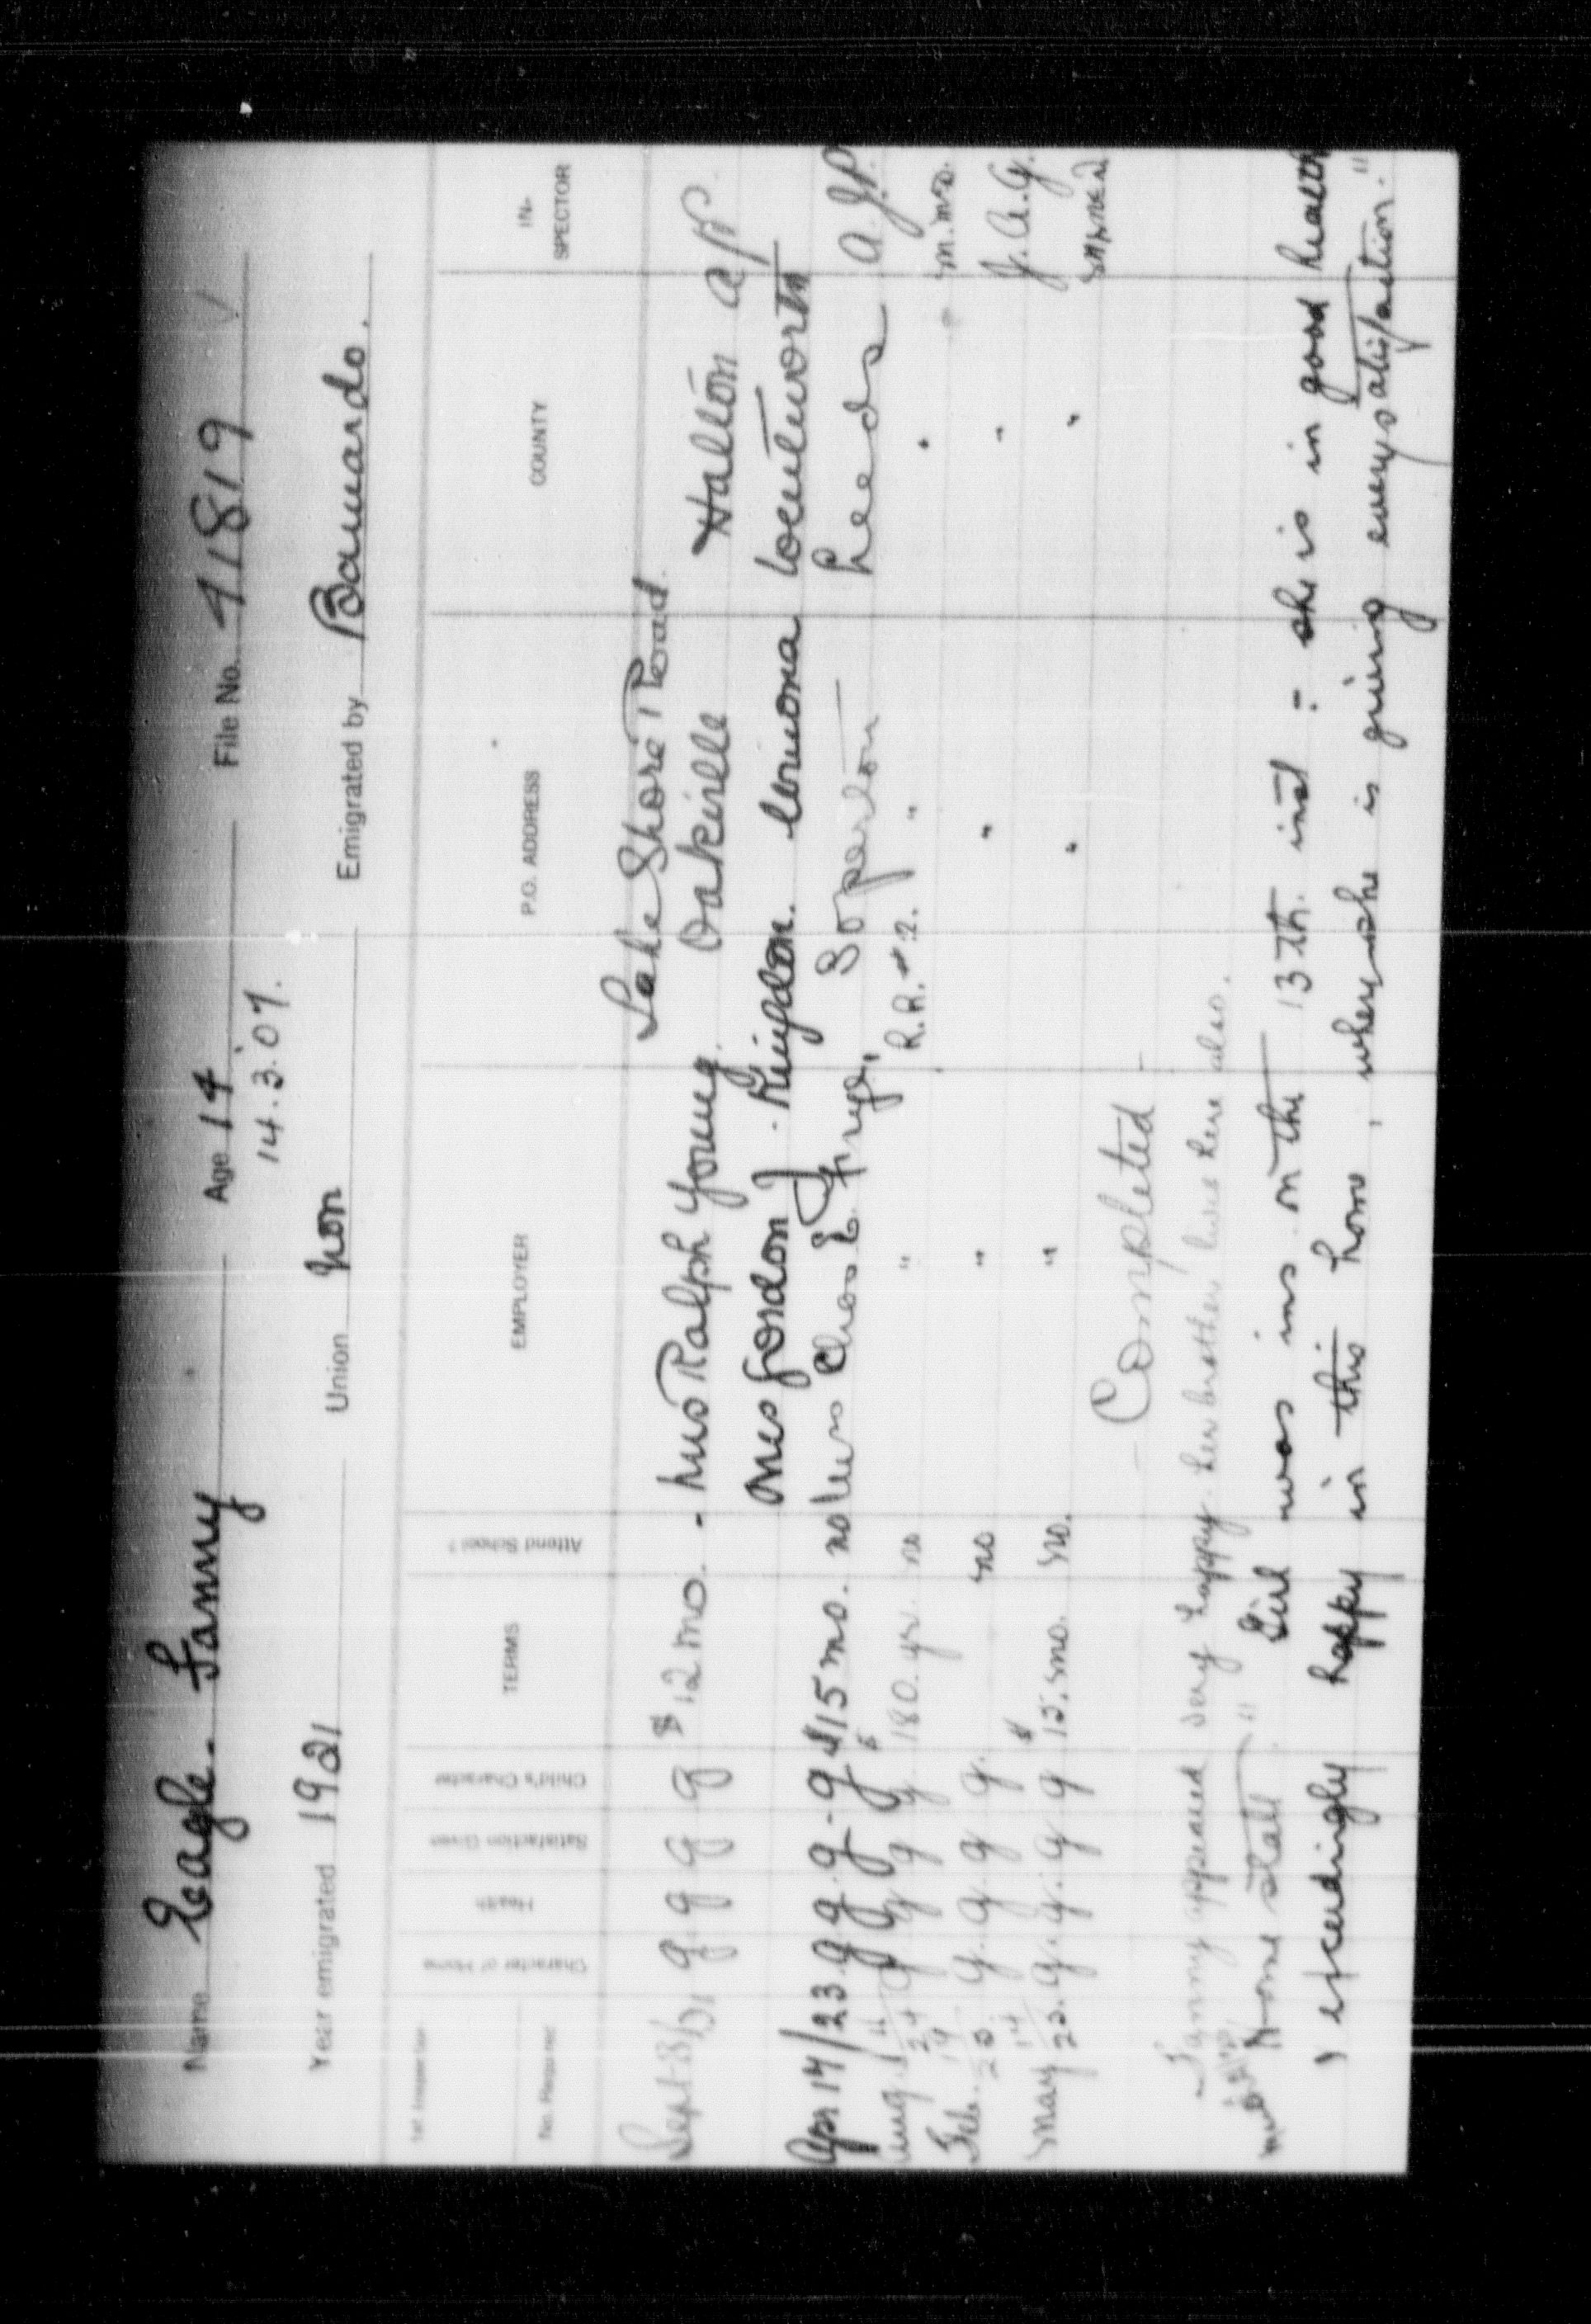 Name Eagle. Fanny Age 14 File No. 41819
14.3.07.
Year emigrated 1921 Union Non Emigrated by Barnardo.
1st Inspector Character of Home Health Satisfaction Given Child's Character TERMS Attend School? EMPLOYER P.O. ADDRESS COUNTY IN-SPECTOR
No. Required
Lake Shore Road
Sept 8/21 g. g g g $12 mo. - Mrs Ralph Young. Oakville Halton
Mrs Gordon J. Kingdon. Winona Wentworth
Apr 14/23 g g. g - g $15 mo. no Mrs Chas E. Frye, Soperton Leeds A.J.P.
Aug 24 g g g g. $180. yr. no " R.R. #2. " "
Feb. 14 25. g. g. g g. no " " " J.A.G.
May 14 25. g. g. g g $15. mo. no. " " "
- Completed -
"Fanny appeared very happy. her brother lives here also.
None stall"
Girl was ins. on the 13th. inst - she is in good health
& exceedingly happy in this home, where she is giving every satisfaction."